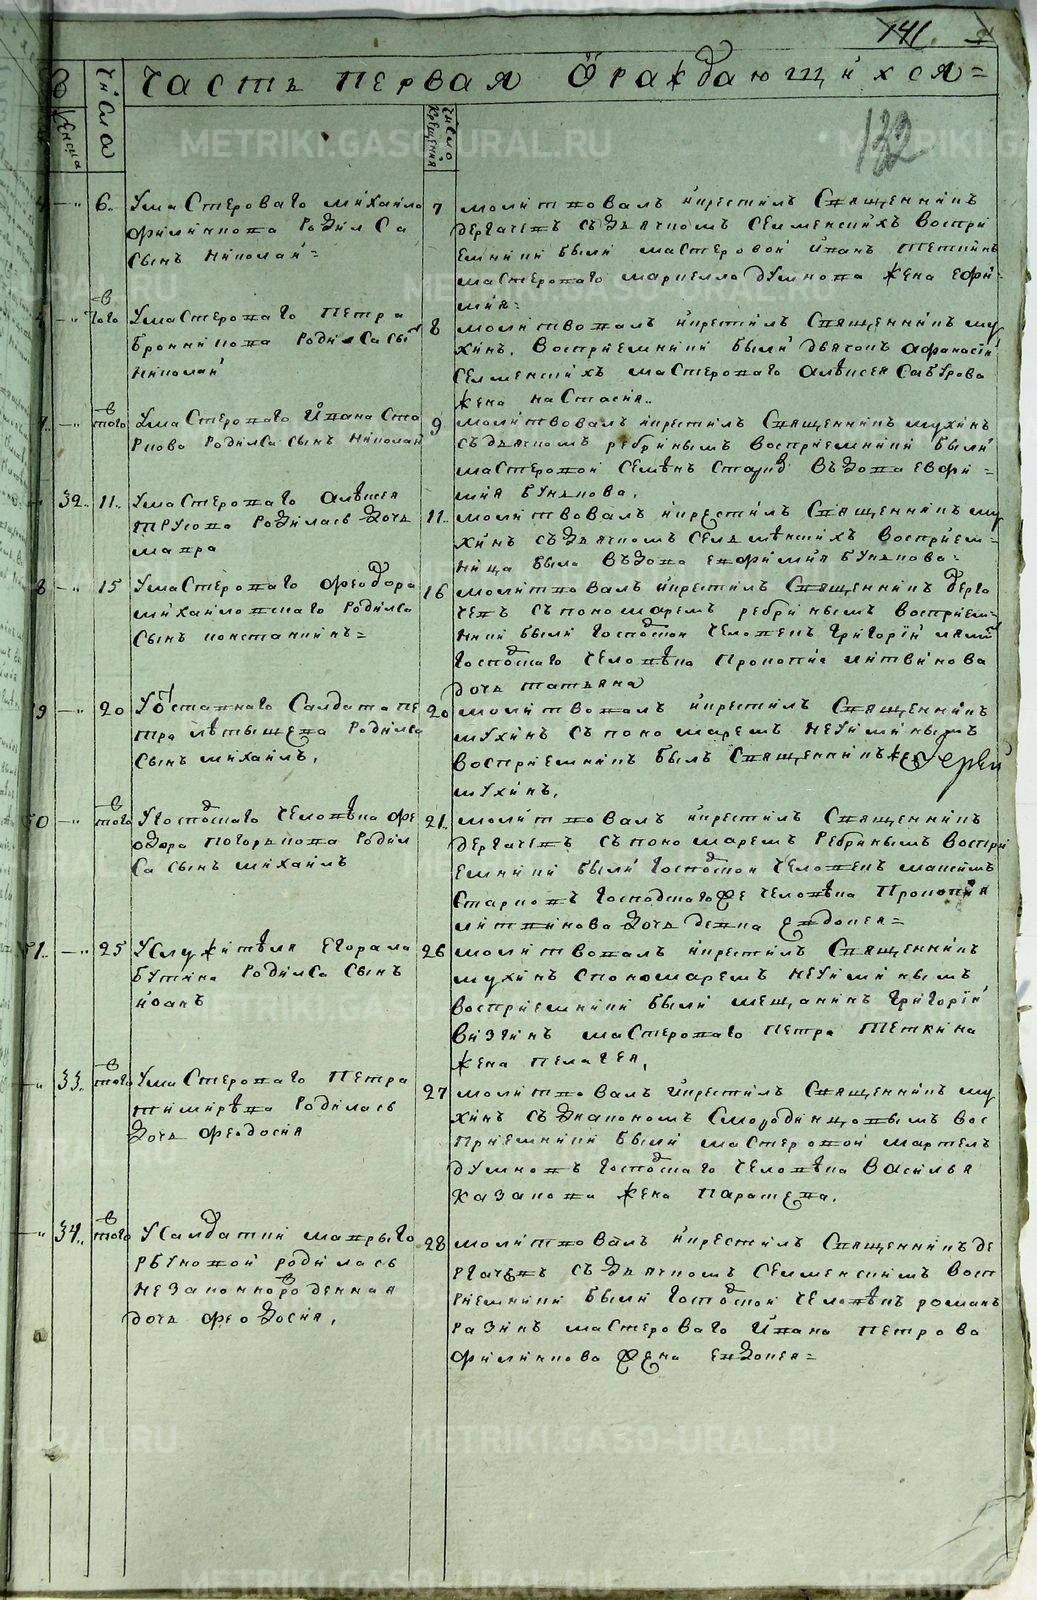 141.
Часть первая Ораждающихся=
Числа
Женска
число
крещения
132
6. Умастероваго михаило
филиппова родилса
сынъ николаи=
7 молитвовалъ икрестилъ Священникъ
дергачевъ съдьячкомъ Селменскихъ воспри
емники были мастеровои иванъ теткинъ
мастероваго маркелло думнова жена ефи-
мия=
того Умастероваго петра
бронникова родилса сы
николаи
8 молитвовалъ икрестилъ Священникъ му
хинъ. восприемники были дьячокъ афанасии
Селменскихъ мастероваго алѣксея Сабурова
жена настасия..
того Умастероваго ивана Ста
ркова родилса сынъ николаи
9 молитвовалъ икрестилъ Священникъ мухинъ
съдьячкомъ ребринымъ восприемники были
мастеровои Семѣнъ въдова евфи=
мия бункова.
32. 11. Умастероваго алѣксея
трусова родилась дочь
мавра
11. молитвовалъ икрестилъ Священникъ му
хинъ съдьячкомъ Селменскихъ восприем-
ница была въдова евфимия бункова=
15 Умастероваго феодора
михаиловскаго родилса
Сынъ констаннинъ=
16 молитвовалъ икрестилъ Священникъ дерга
чевъ съпономаремъ ребринымъ восприем-
ники были господскои человекъ григории
господскаго человѣка прокопия литвинова
дочь татьяна
9 20 Уотставнаго Салдата пе
тра лѣтыщева родилса
Сынъ михаилъ.
20 молитвовалъ икрестилъ Священникъ
мухинъ съпономаремъ неуиминымъ
восприемникъ былъ Священникъже Иереи
мухинъ.
50 того Угосподскаго человѣка фе
одора погорѣлова родил
Са сынъ михаилъ
21. молитвовалъ икрестилъ Священникъ
дергачевъ съпономаремъ ребринымъ воспри
емники были господскои человекъ максимъ
Старковъ господскагоже человѣка прокопия
литвинова дочь девка евдокея=
51. 25 Услужителя егорала
бутина родилса Сынъ
иоанъ
26 молитвовалъ икрестилъ Священникъ
мухинъ спономаремъ неуиминымъ
восприемники были мещанинъ григории
визгинъ мастероваго петра теткина
жена пелагея.
33. того Умастероваго петра
тимирѣва родилась
дочь феодосия
27 молитвовалъ икрестилъ Священникъ му
хинъ съдиакономъ Смородинцовымъ вос
приемники были мастеровои мартелъ
думновъ господскаго человѣка василья
казакова жена параскева.
34. того Усалдатки мавры го
рбуновои родилась
незаконнорожденная
дочь феодосия.
28 молитвовалъ икрестилъ Священникъ де
ргачевъ съдьячкомъ Селменскимъ восп
риемники были господскои человѣкъ романъ
разинъ мастероваго ивана петрова
филиппова жена евдокея=